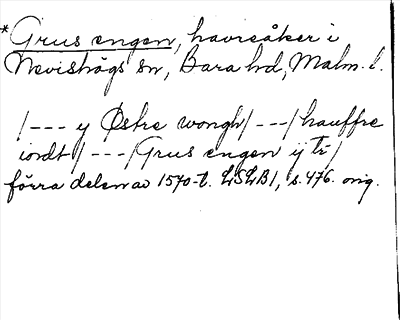 *Grus engen, havreåker i
Nevishögs sn, Bara hd, Malm. l.
/--- y Østre wongh/---/hauffre
iordt/---/Grus engen ÿ tr/
förra delen av 1570-t. LSLB1, s. 476. orig.